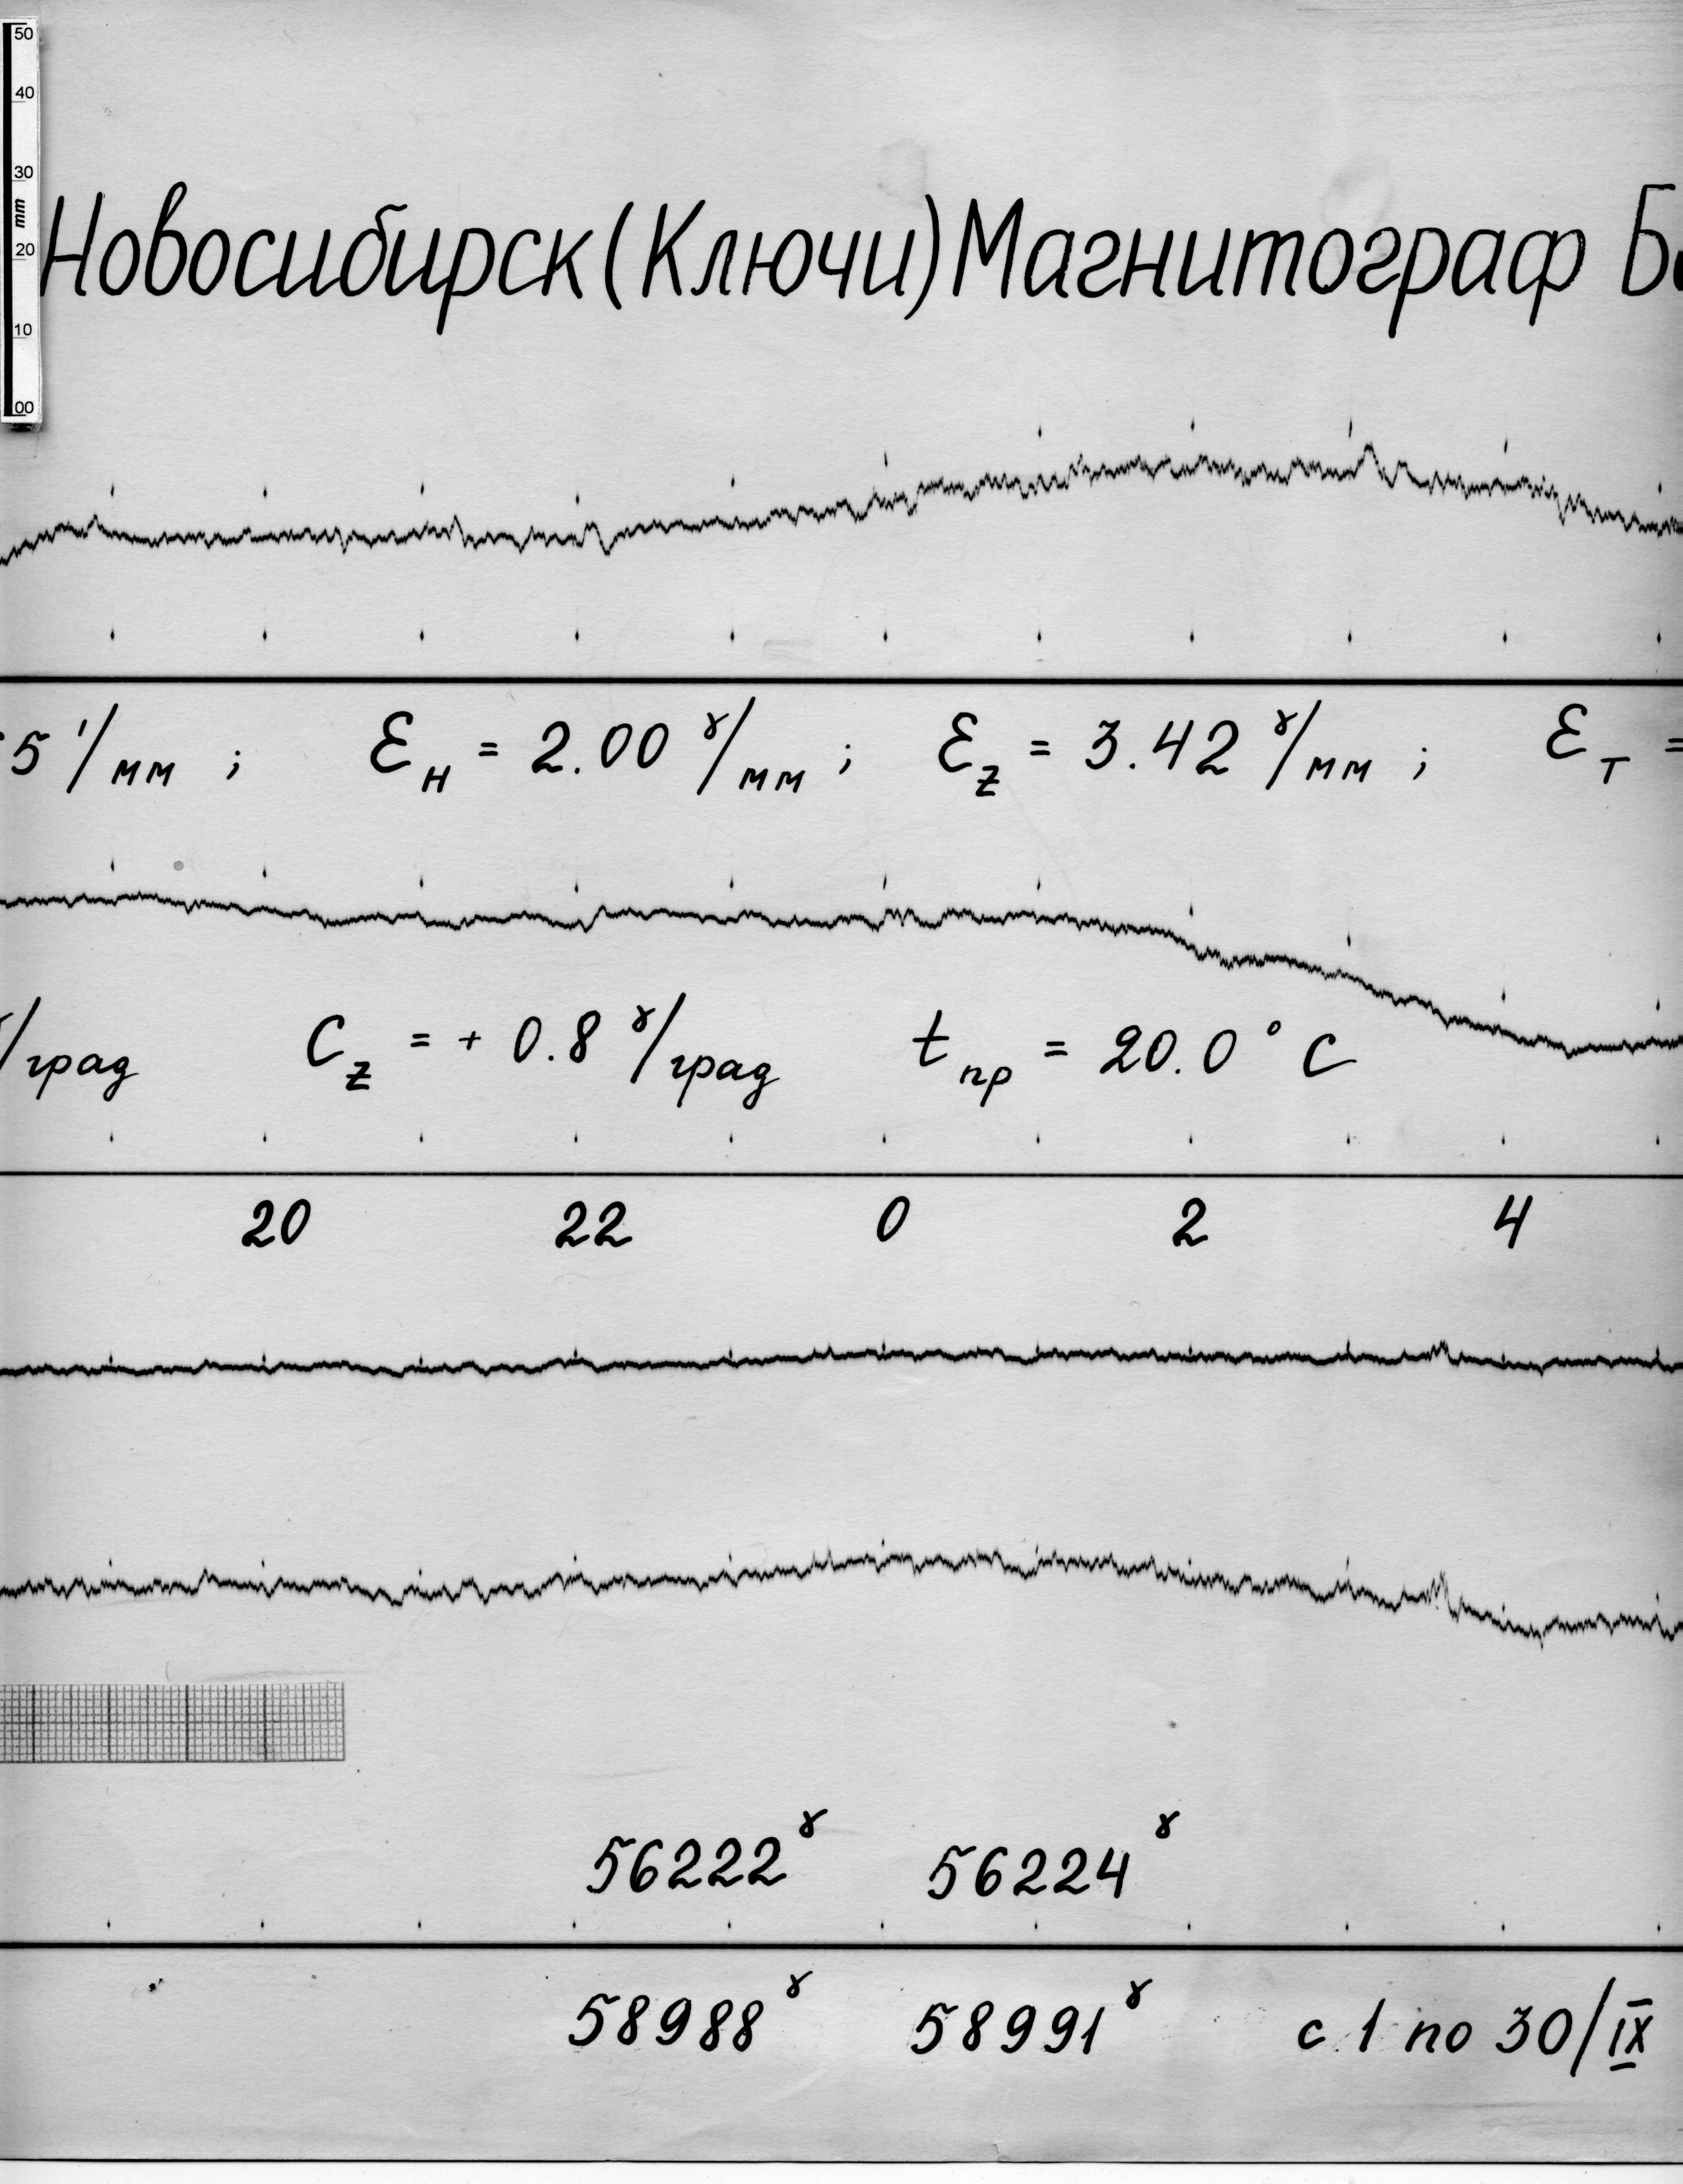 50
40
30
mm
20
10
00
Новосибирск (Ключи) Магнитограф
5 '/мм ; Ɛ H = 2.00 γ/мм ; Ɛ Z = 3.42 γ/мм ; Ɛ T =
/град C Z = + 0.8 γ/град t пр = 20.0° C
20 22 0 2 4
56222 γ 56224 γ
58988 γ 58991 γ с 1 по 30/IX